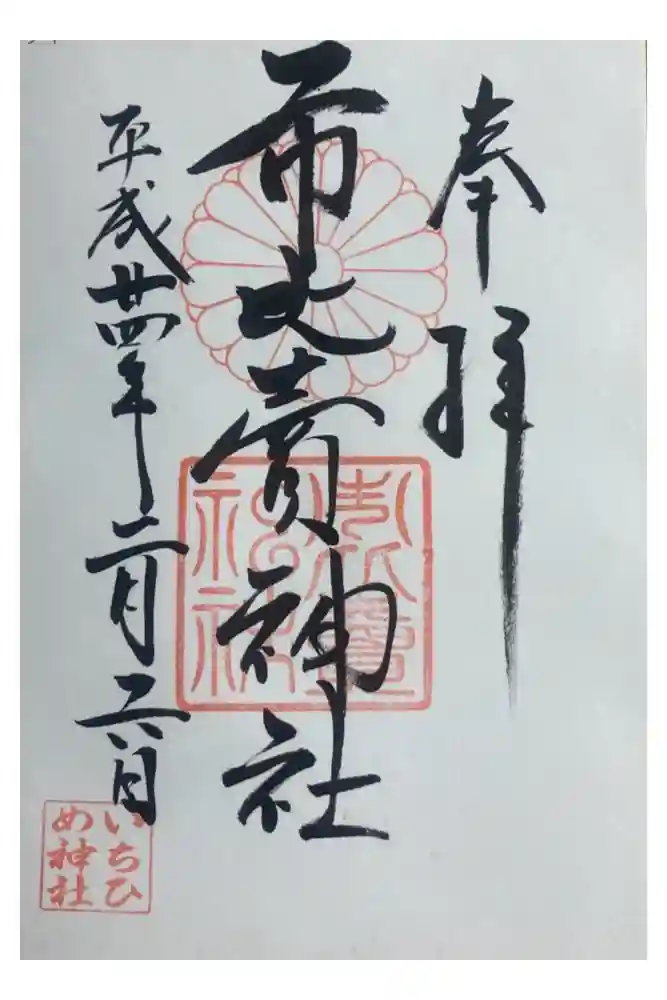 奉拝
市比賣神社
平成廿四年二月二六日
いちひ
め神社